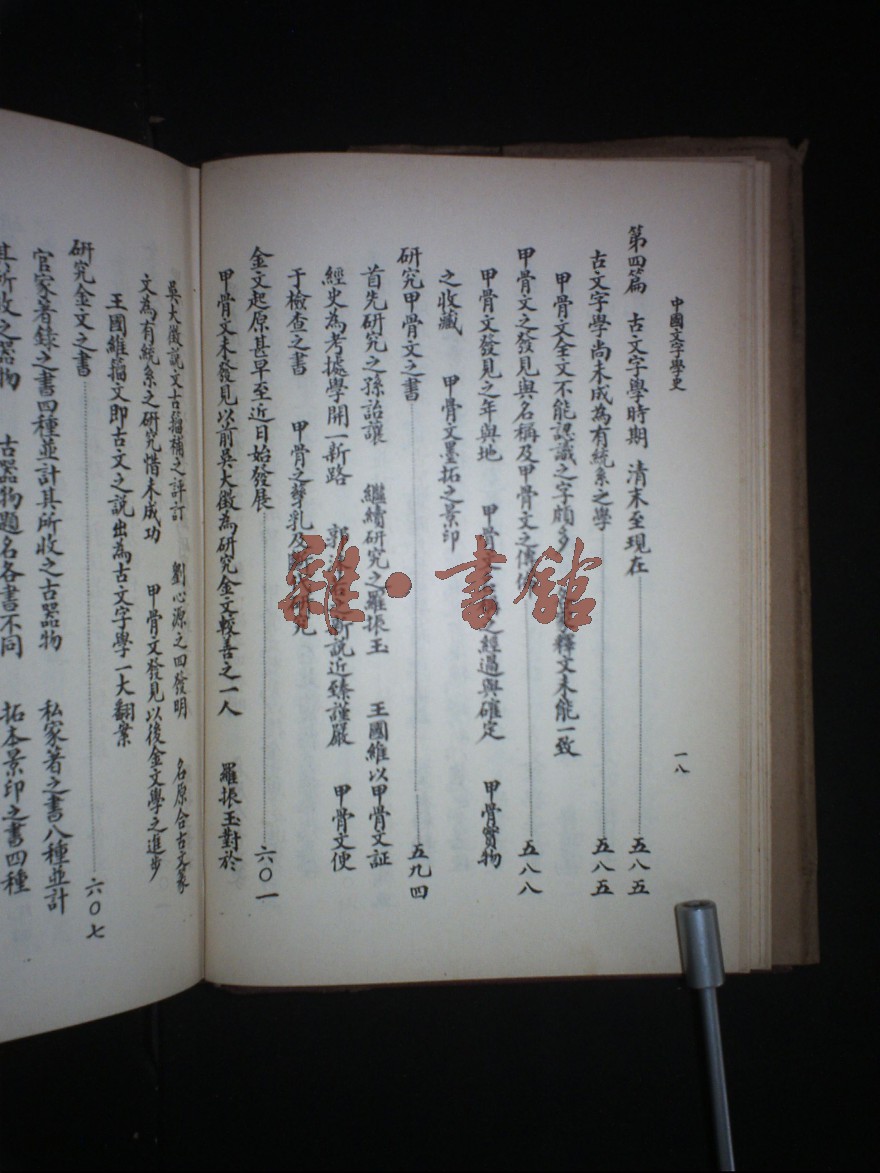 中國文字學史
一八
第四篇 古文字學時期 清末至現在 五八五
古文字學尚未成為有統系之學 五八五
甲骨文全文不能認識之字頗多 釋文未能一致
甲骨文之發見與名稱及甲骨文之傳 五八八
甲骨文發見之年與地 甲骨文 之經過與確定 甲骨實物
之收藏 甲骨文墨拓之景印
研究甲骨文之書 五九四
首先研究之孫詒讓 繼續研究之羅振玉 王國維以甲骨文証
經史為考據學開一新路 郭沫若之新說近臻謹嚴 甲骨文便
于檢查之書 甲骨之孳乳及 研究
金文起原甚早至近日始發展 六〇一
甲骨文未發見以前吳大徵為研究金文較善之一人 羅振玉對於
吳大徵說文古籀補之評訂 劉心源之四發明 名原合古文篆
文為有統系之研究惜未成功 甲骨文發見以後金文學之進步
王國維籀文即古文之說出為古文字學一大翻案
研究金文之書 六〇七
官家著錄之書四種並計其所收之古器物 私家著之書八種並計
其所收之器物 古器物題名各書不同 拓本景印之書四種
雜·書館